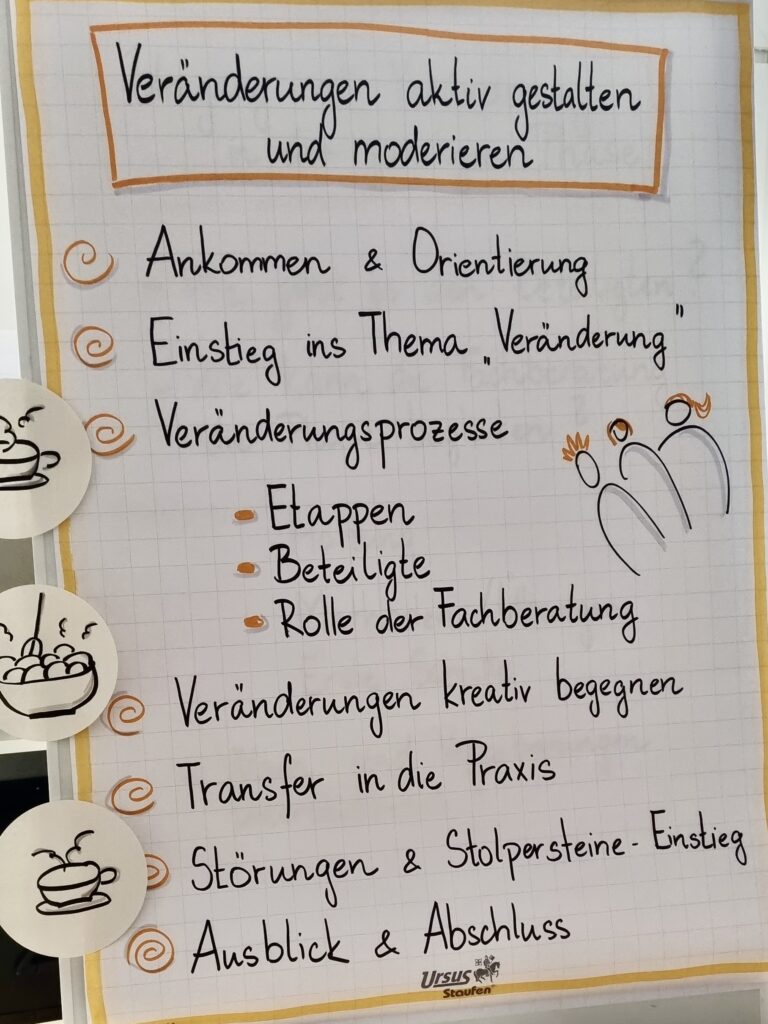 Veränderungen aktiv gestalten
und moderieren
Ankommen & Orientierung
Einstieg ins Thema „Veränderung"
Veränderungsprozesse
- Etappen
- Beteiligte
- Rolle der Fachberatung
Veränderungen kreativ begegnen
Transfer in die Praxis
Störungen & Stolpersteine - Einstieg
Ausblick & Abschluss
Ursus
Staufen